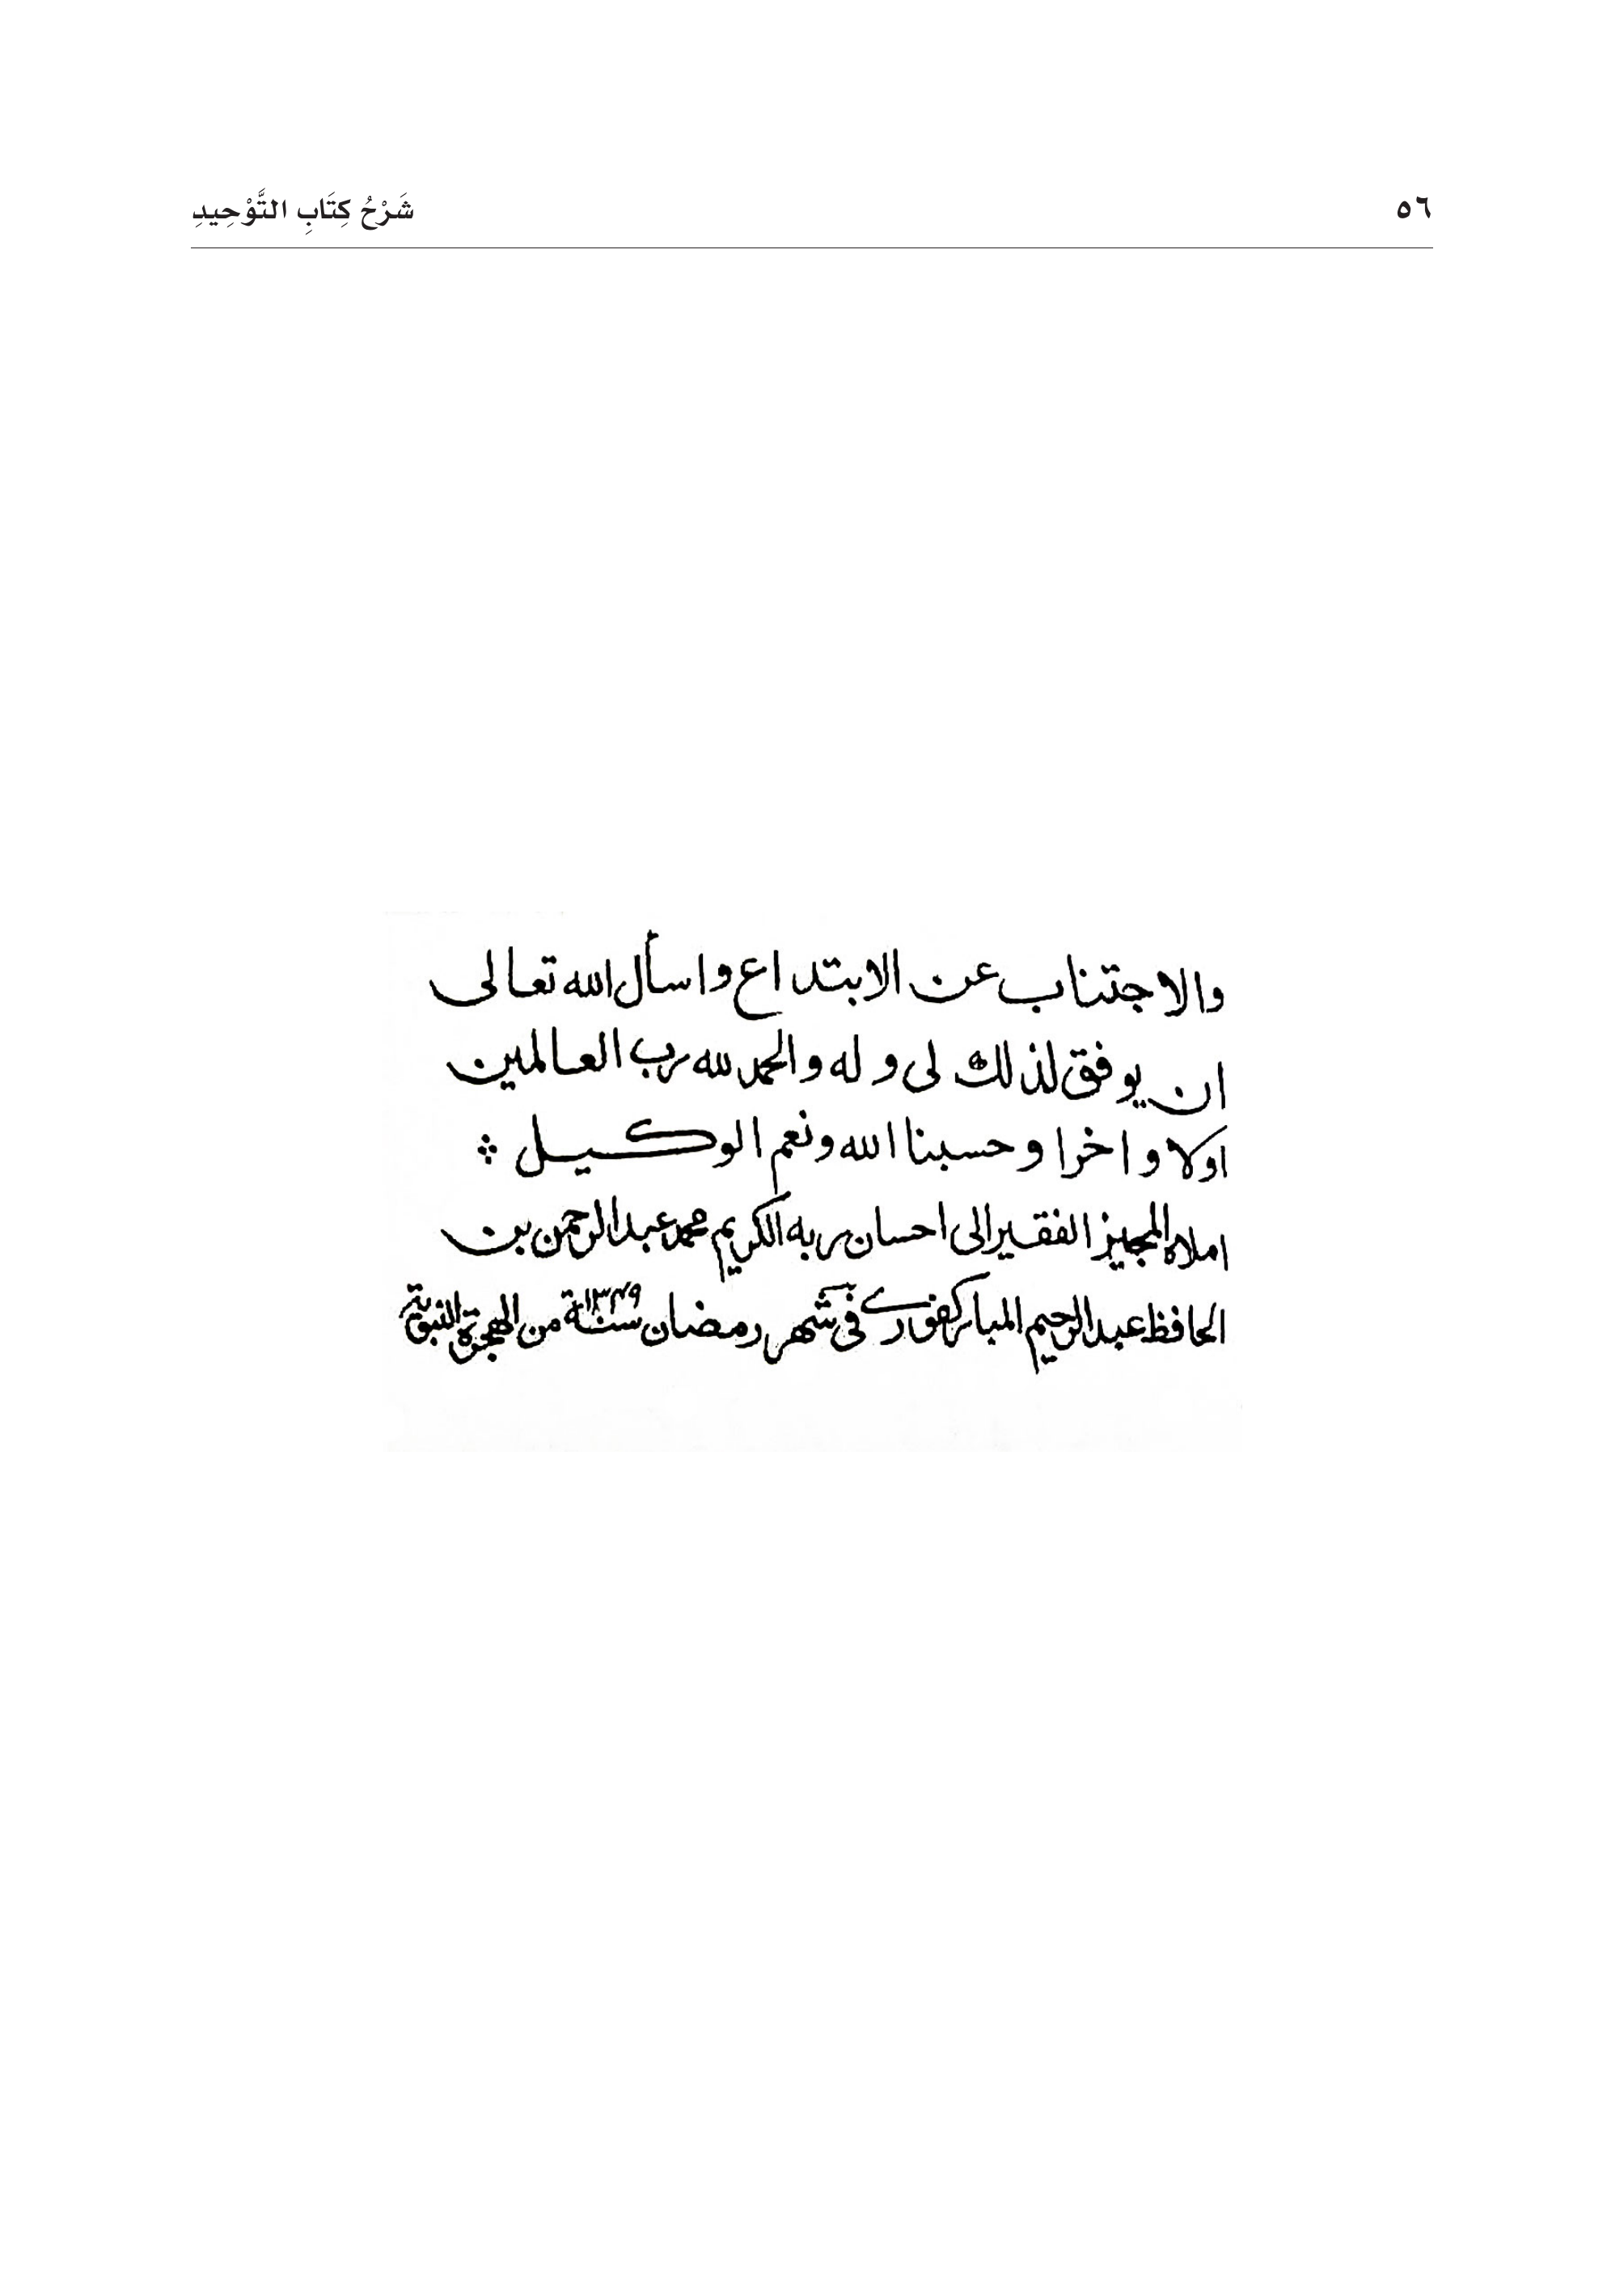 ٥٦
شَرْحُ كِتَابِ التَّوْحِيدِ
والاجتناب عن الابتداع واسأل الله تعالى
ان يوفق لذلك لى وله والحمد لله رب العالمين
اولا واخرا وحسبنا الله ونعم الوكيل
املاه المجيز الفقير الى احسان ربه الكريم محمد عبد الرحمن بن
الحافظ عبد الرحيم المباركفورى فى شهر رمضان سنة ١٣٤٩ من الهجرة النبوية